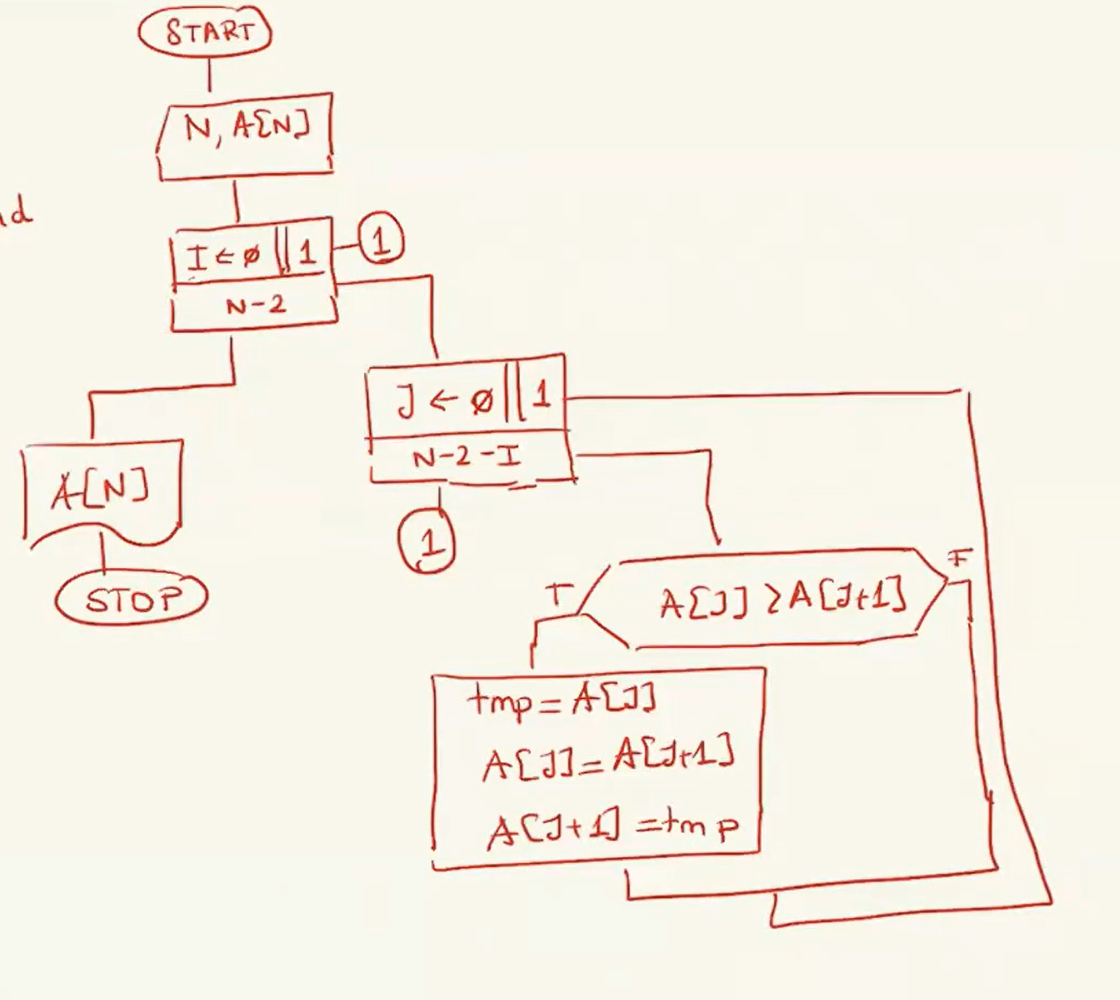 START
N, A[N]
nd
I ← ø || 1
1
N-2
J ← ø || 1
N-2-I
A[N]
1
STOP
T
A[J] ≥ A[J+1]
F
tmp = A[J]
A[J] = A[J+1]
A[J+1] = tmp